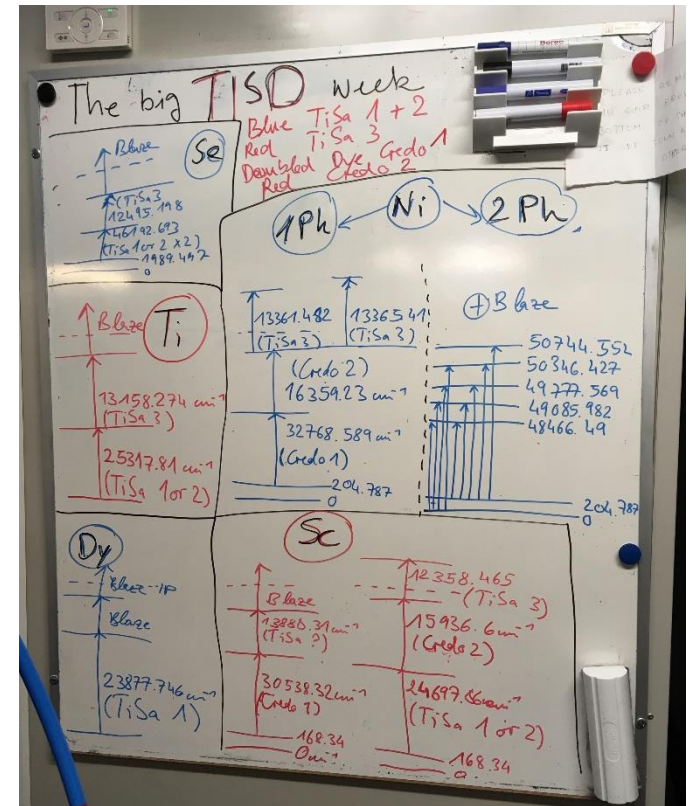 The big TISD week
Blue TiSa 1 + 2
Red TiSa 3
Doubled Dye Credo 1
Red Credo 2
Se
Blaze
(TiSa3
12495.198
46192.693
(TiSa 1or 2 x2)
1989.497
0
1Ph
Ni
2Ph
13361.482
(TiSa 3)
13365.41
(TiSa 3)
(Credo 2)
16359.23 cm⁻¹
32768.589 cm⁻¹
(Credo 1)
204.787
0
+ Blaze
50744.552
50346.427
49777.569
49085.982
48466.49
204.787
0
Blaze
Ti
13158.274 cm⁻¹
(TiSa 3)
25317.81 cm⁻¹
(TiSa 1or 2)
Dy
Blaze IP
Blaze
23877.746 cm⁻¹
(TiSa 1)
Sc
Blaze
(TiSa ?)
30538.32 cm⁻¹
(Credo 1)
168.34
0 cm⁻¹
12358.465
(TiSa 3)
15936.6 cm⁻¹
(Credo 2)
24697.86 cm⁻¹
(TiSa 1 or 2)
168.34
0